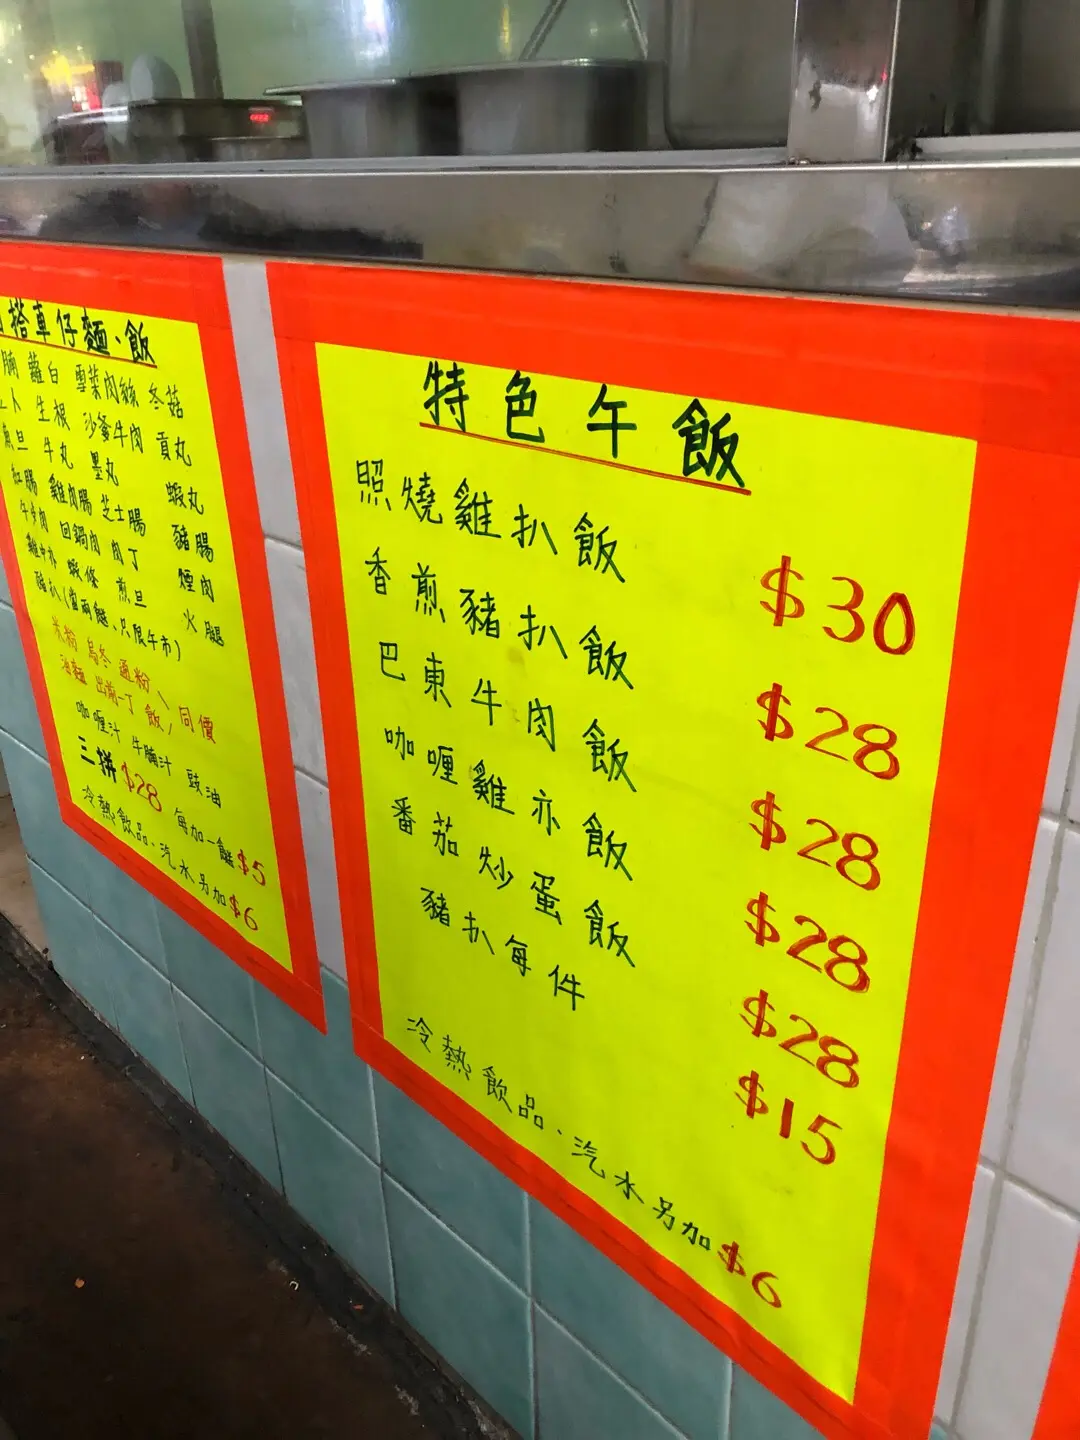 搭車仔麵、飯
腩 蘿白 雪菜肉絲 冬菇
卜 生根 沙爹牛肉 貢丸
魚旦 牛丸 墨丸 蝦丸
紅腸 雞肉腸 芝士腸 豬腸
回鍋肉 肉丁 煙肉
雞中亦 蝦條 煎旦 火腿
豬扒(當兩餸、只限午市)
米粉 烏冬 通粉
油麵 出前一丁 飯 同價
咖喱汁 牛腩汁 豉油
三拼 $28 每加一餸 $5
冷熱飲品、汽水另加 $6
特色午飯
照燒雞扒飯 $30
香煎豬扒飯 $28
巴東牛肉飯 $28
咖喱雞亦飯 $28
番茄炒蛋飯 $28
豬扒每件 $15
冷熱飲品、汽水另加 $6